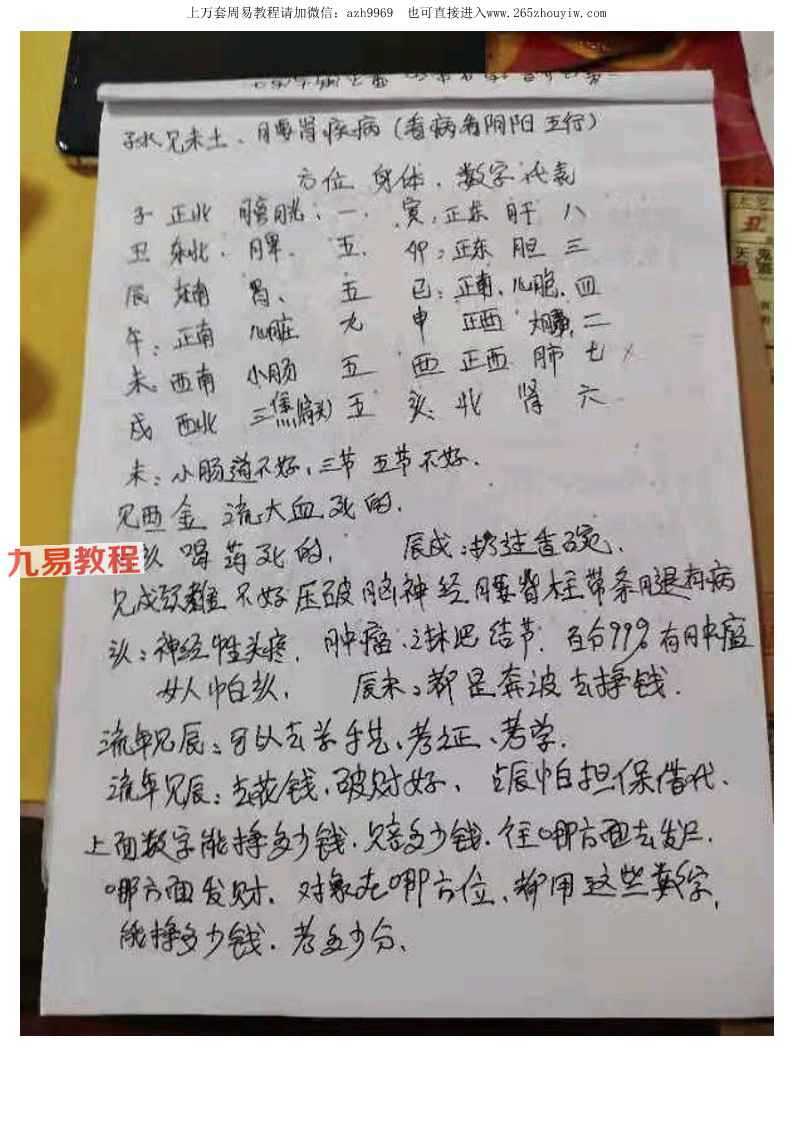 上万套周易教程请加微信：azh9969 也可直接进入www.265zhouyiw.com
子水见未土、腰肾疾病（看病看阴阳五行）
方位 身体、数字代表
子 正北 膀胱、一、寅：正东 肝 八
丑 东北、脾、五、卯：正东 胆 三
辰 东南 胃、五 巳：正南、心胞、四
午：正南 心脏 九 申 正西 大肠、二
未：西南 小肠 五 酉 正西 肺 七
戌 西北 三焦 五 亥：北 肾 六
未：小肠道不好，三节五节不好．
见酉金 流大血死的．
喝药死的， 辰戌：
九易教程
不好压破脑神经腰脊柱带条腿有病
神经性头疼，肿瘤、淋巴结节，百分99%有肿瘤
女人怕 辰未：都是奔波去挣钱．
流年见辰：可以去学手艺、考证、考学．
流年见辰：去花钱，破财好、辰怕担保借代．
上面数字能挣多少钱．赔多少钱．往哪方面去发
哪方面发财．对象在哪方位、都用这些数字，
能挣多少钱．考多少分、